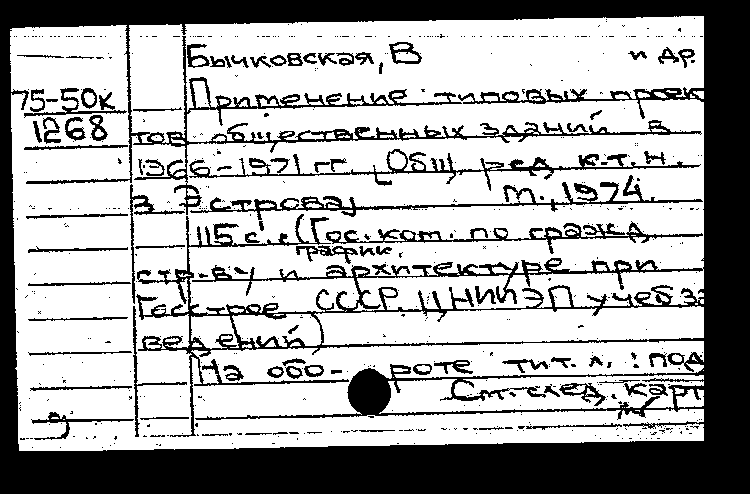 Бычковская, В и др.
75-50к Применение типовых проек
1268 тов общественных зданий в
1966-1971 гг. [Общ. ред. к.т.н.
З Э строва] М., 1974.
115 с. с (Гос. ком. по гражд
график.
стр-ву и архитектуре при
Госстрое СССР. ЦНИИЭП учеб за
ведений)
На обо- роте тит. л. : под
См. след. карт